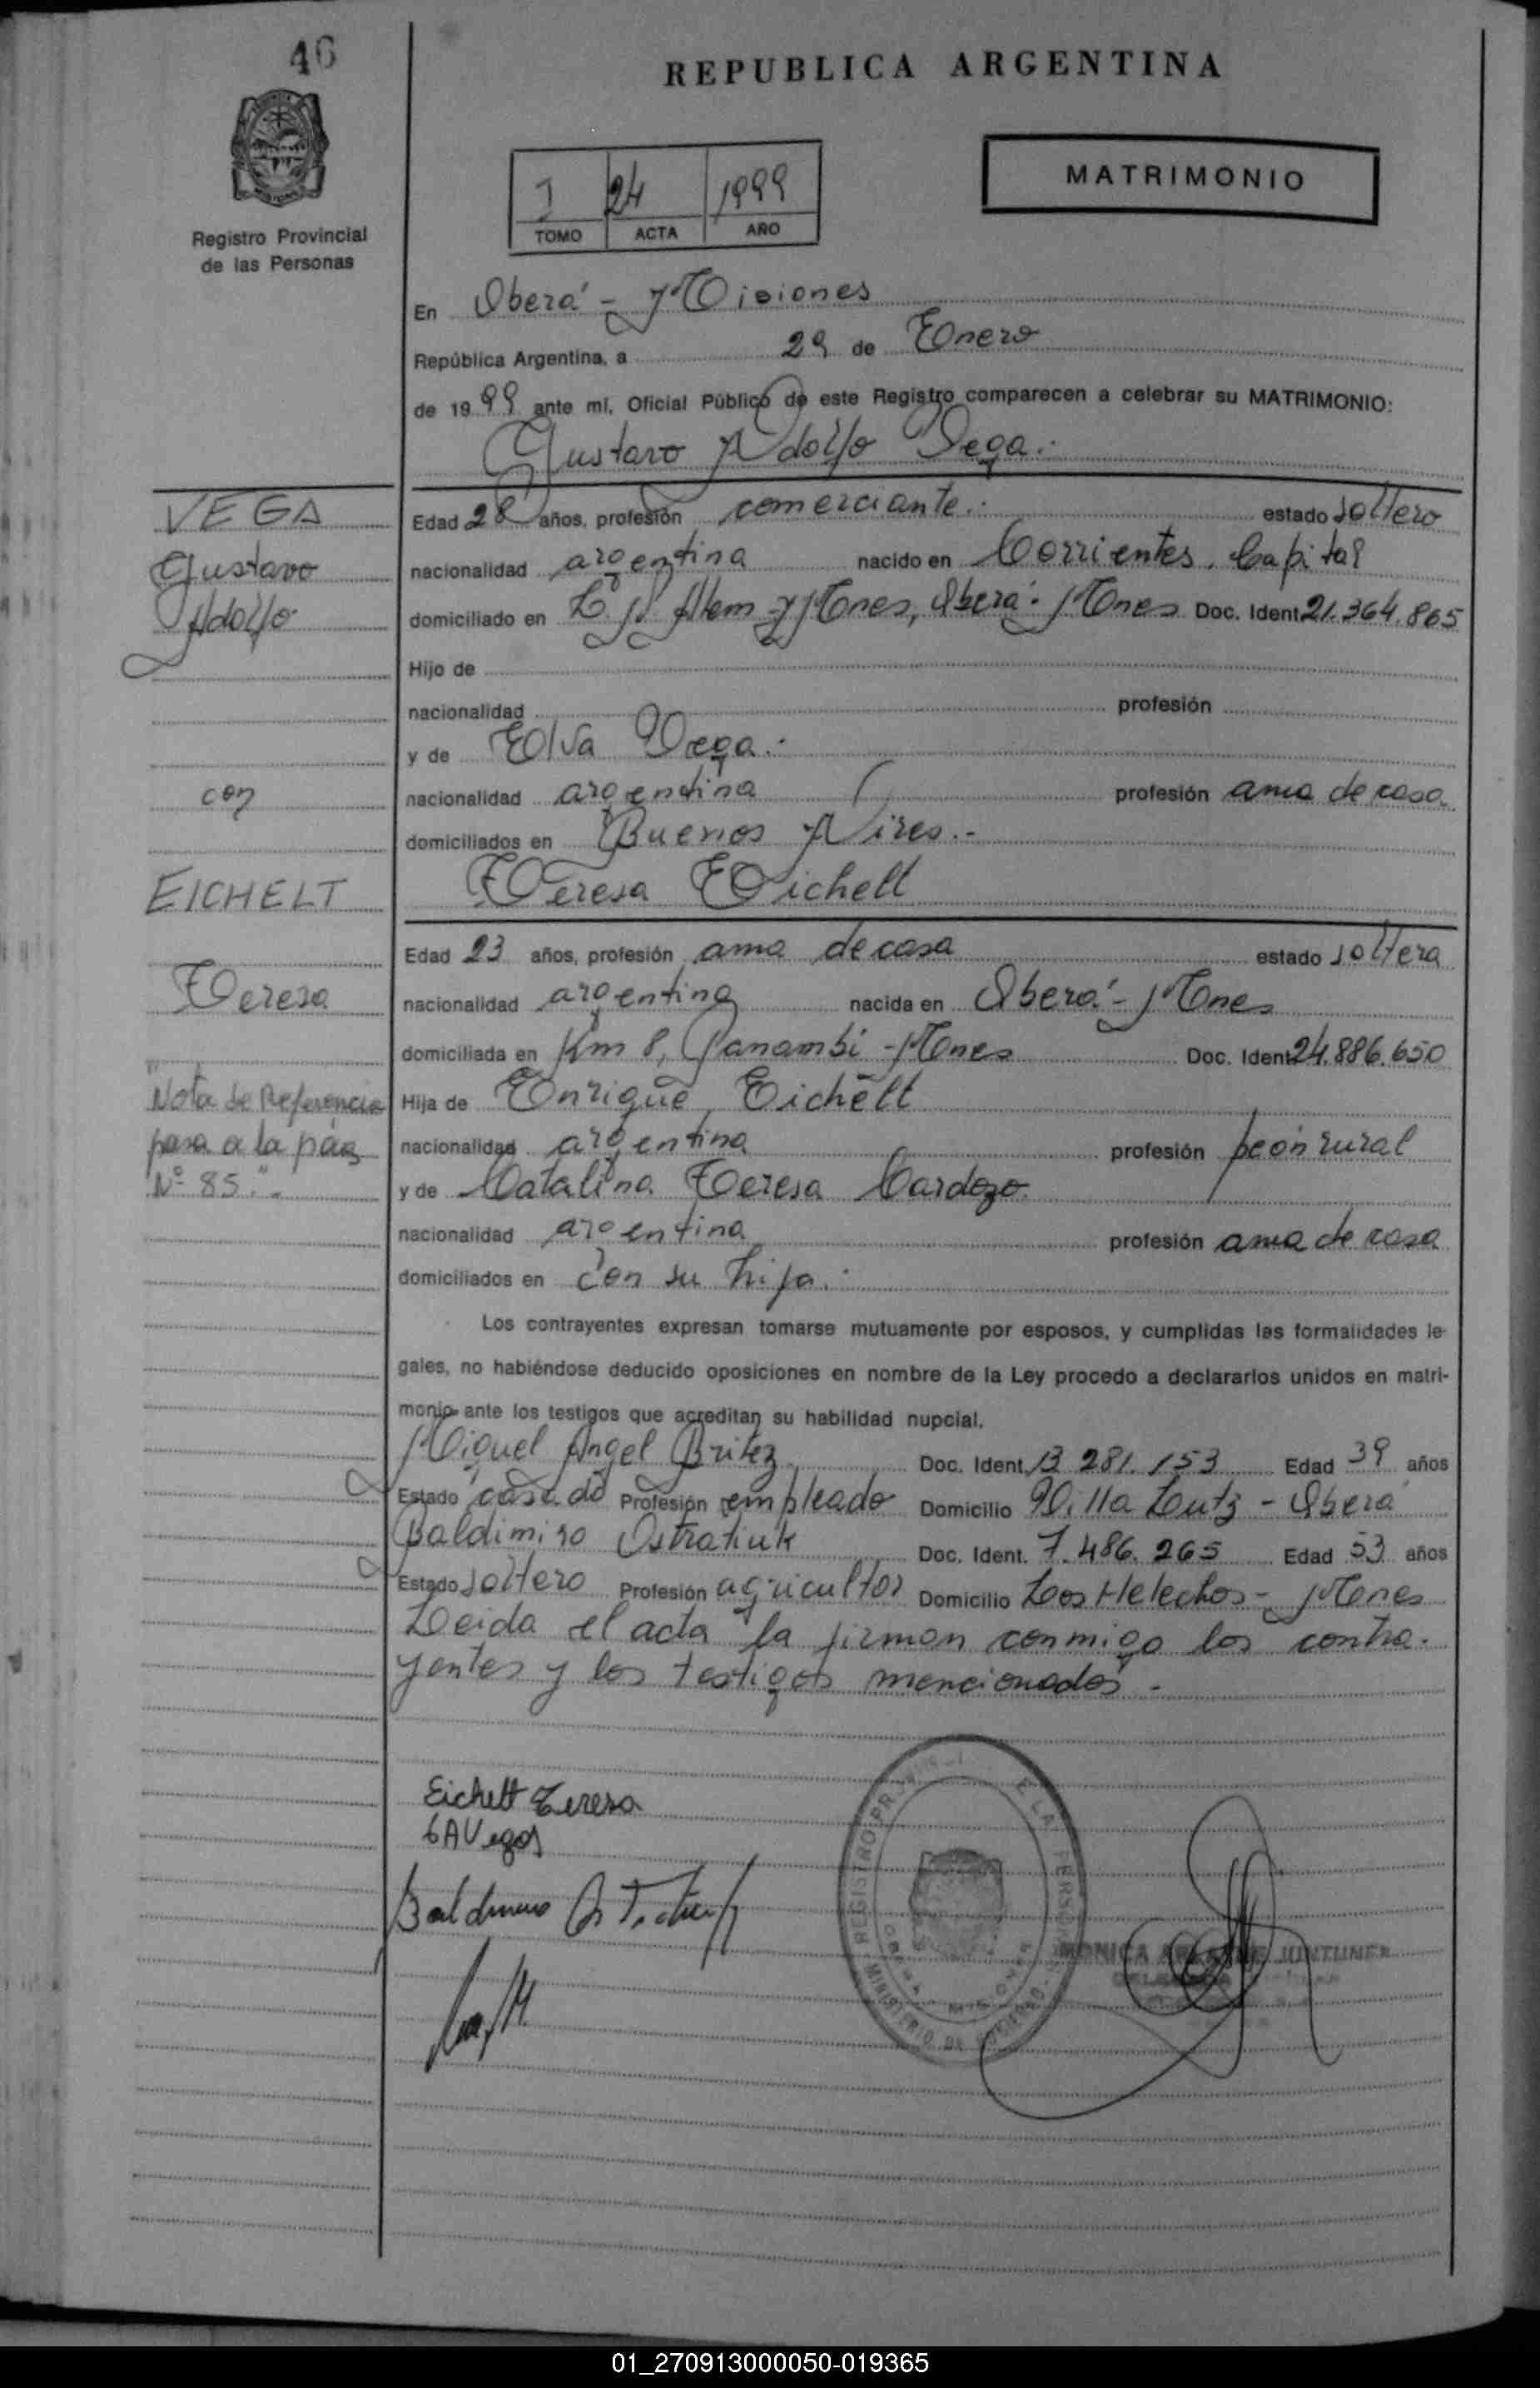 46
REPUBLICA ARGENTINA
Registro Provincial
de las Personas
I 24 1999
TOMO ACTA AÑO
MATRIMONIO
En Oberá - Misiones
República Argentina, a 29 de Enero
de 1999 ante mí, Oficial Público de este Registro comparecen a celebrar su MATRIMONIO:
Gustavo Adolfo Vega.-
VEGA
Gustavo
Adolfo
con
EICHELT
Teresa
Nota de Referencia
pasa a la pág
Nº 85."-
Edad 28 años, profesión comerciante.- estado soltero
nacionalidad argentina nacido en Corrientes, Capital
domiciliado en L. N. Alem y Mnes, Oberá - Mnes Doc. Ident 21.364.865
Hijo de
nacionalidad profesión
y de Elva Vega.-
nacionalidad argentina profesión ama de casa
domiciliados en Buenos Aires.-
Teresa Eichelt
Edad 23 años, profesión ama de casa estado soltera
nacionalidad argentina nacida en Oberá - Mnes
domiciliada en Km 8, Panambí - Mnes Doc. Ident 24.886.650
Hija de Enrique Eichelt
nacionalidad argentina profesión peón rural
y de Catalina Teresa Cardozo
nacionalidad argentina profesión ama de casa
domiciliados en con su hija.-
Los contrayentes expresan tomarse mutuamente por esposos, y cumplidas las formalidades le-
gales, no habiéndose deducido oposiciones en nombre de la Ley procedo a declararlos unidos en matri-
monio ante los testigos que acreditan su habilidad nupcial.
Miguel Angel Britez Doc. Ident. 13.281.153 Edad 39 años
Estado casado Profesión empleado Domicilio Villa Lutz - Oberá
Baldimiro Ostratiuk Doc. Ident. 7.486.265 Edad 53 años
Estado soltero Profesión agricultor Domicilio Los Helechos - Mnes
Leida el acta la firman conmigo los contra-
yentes y los testigos mencionados -
Eichelt Teresa
GAVega
REGISTRO PROVINCIAL DE LAS PERSONAS
MINISTERIO DE GOBIERNO
MONICA
01_270913000050-019365